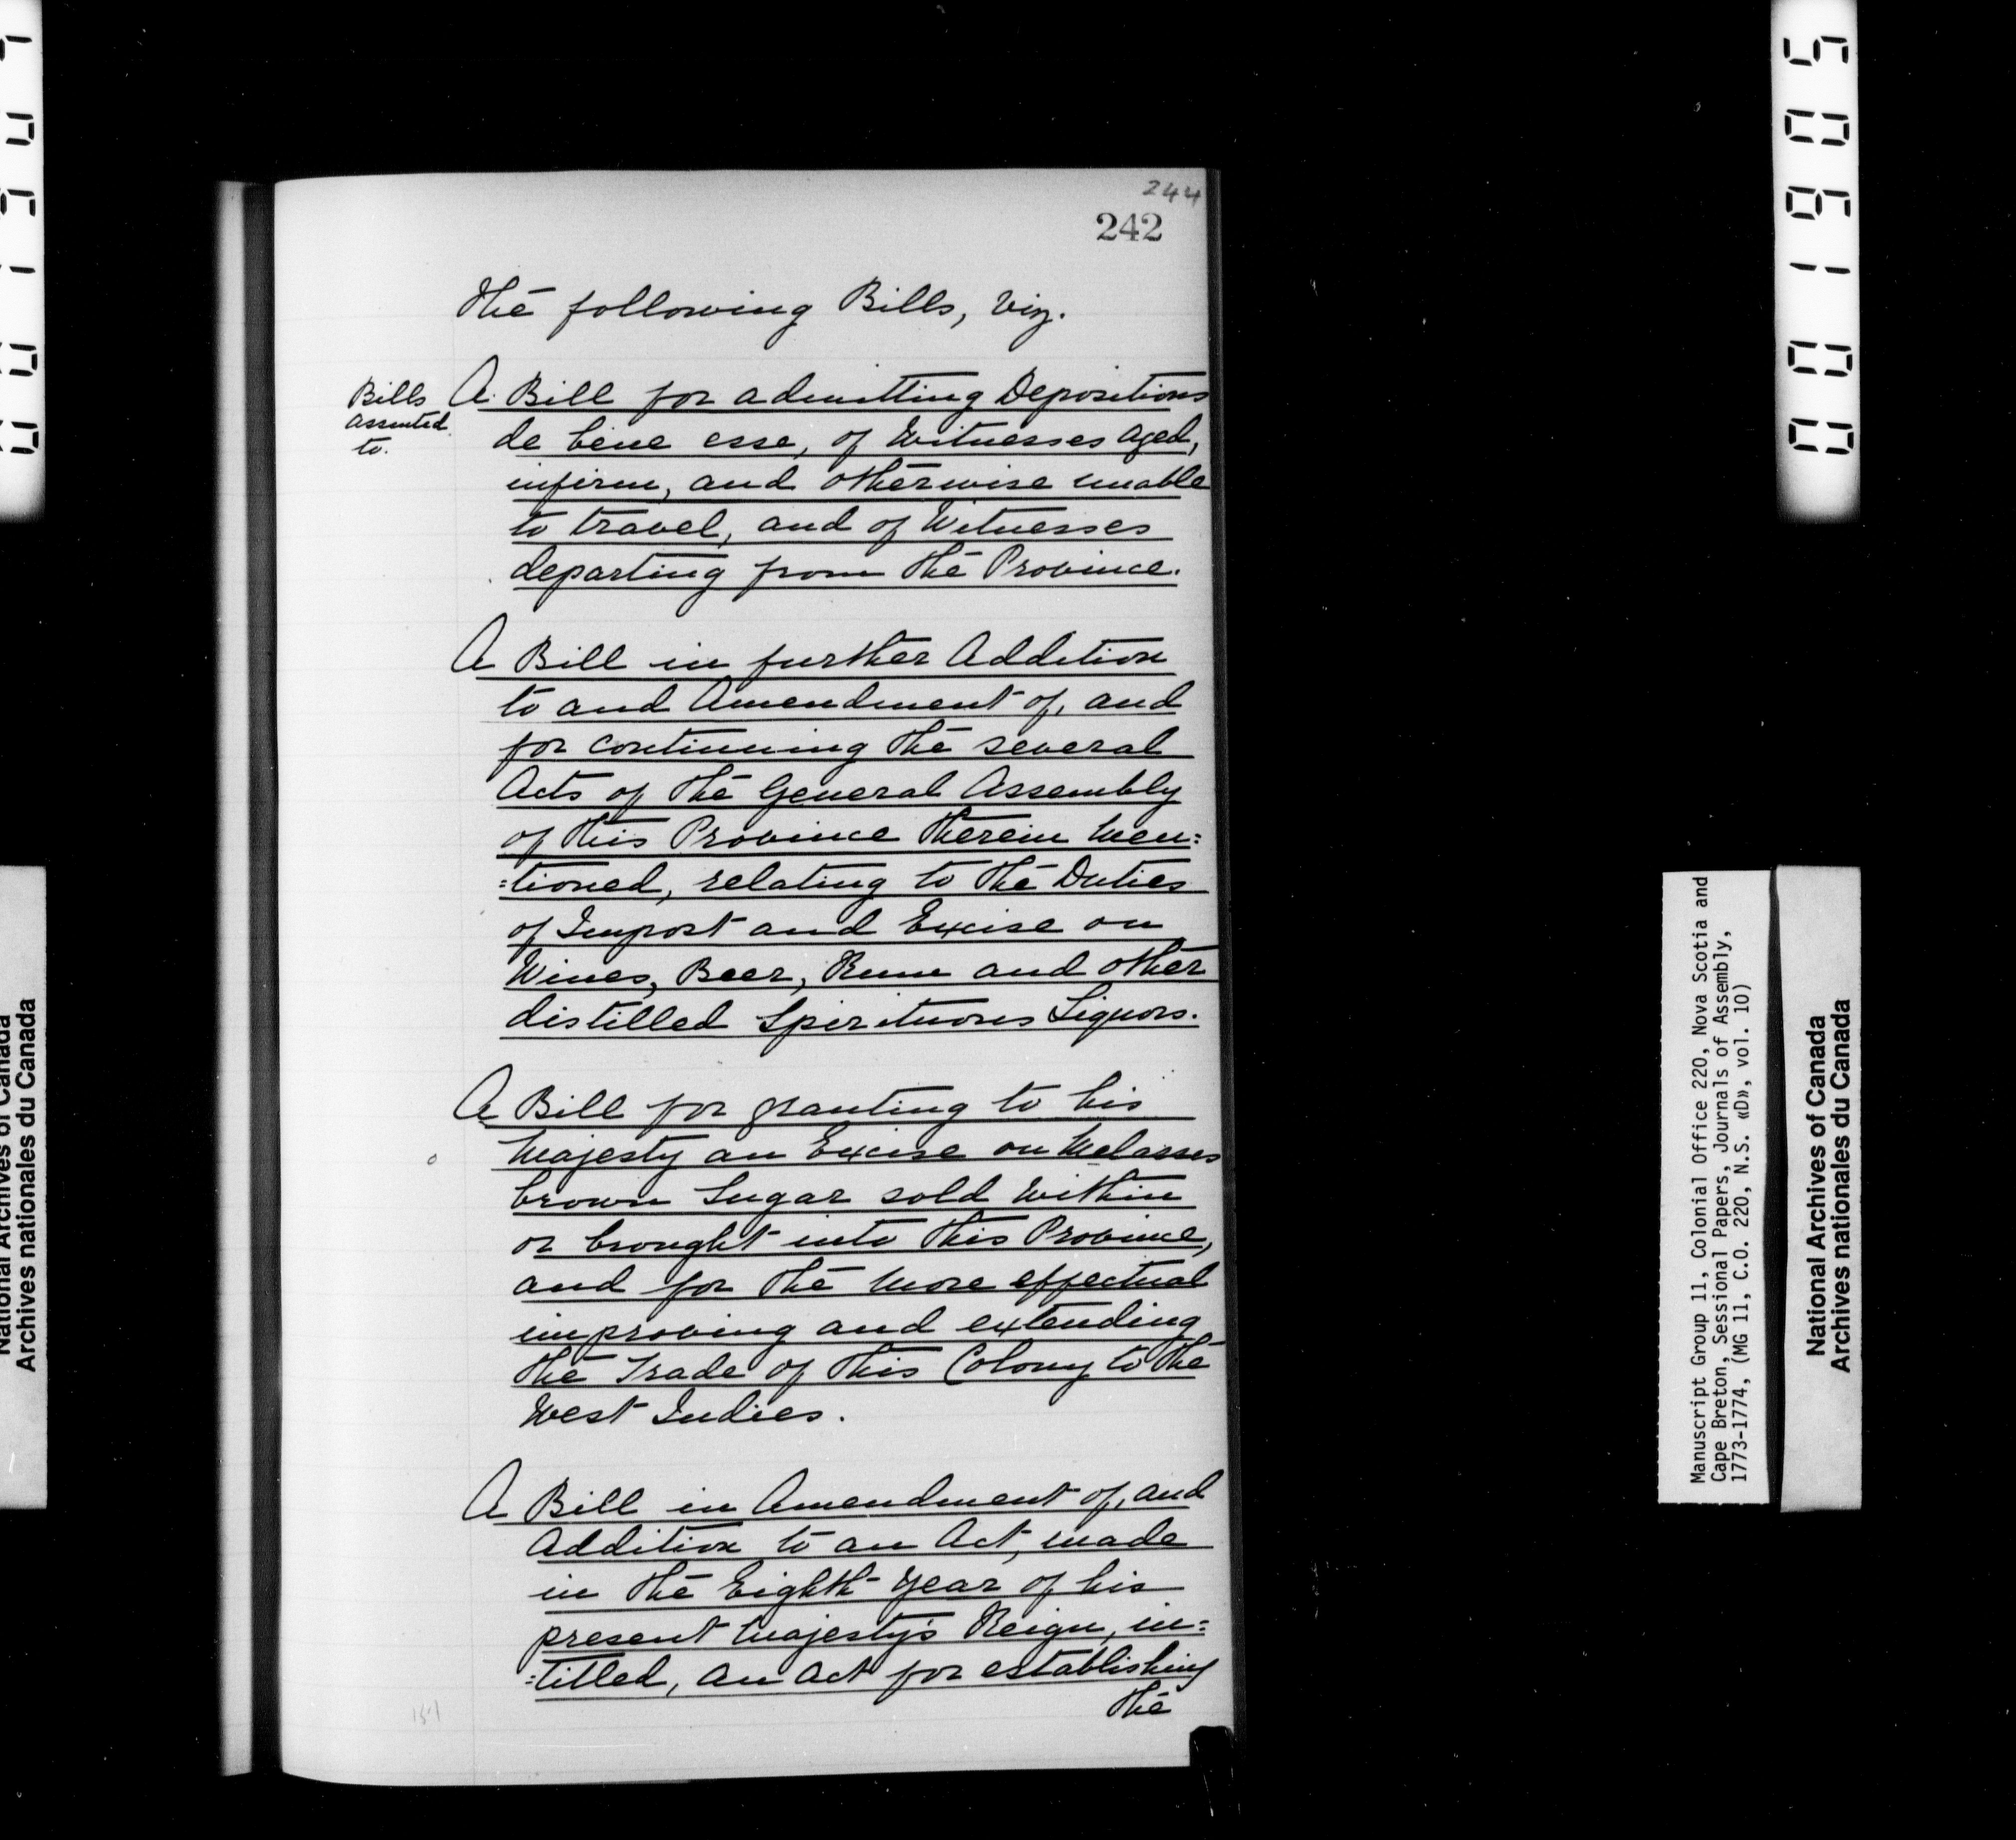 244
242
The following Bills, viz.
Bills
assented
to.
A Bill for admitting Depositions
de bene esse, of Witnesses aged,
infirm, and otherwise unable
to travel, and of Witnesses
departing from the Province.
A Bill in further Addition
to and Amendment of, and
for continuing the several
Acts of the General Assembly
of this Province therein men:
:tioned, relating to the Duties
of Impost and Excise on
Wines, Beer, Rum and other
distilled Spirituous Liquors.
A Bill for granting to his
Majesty an Excise on Melasses
brown Sugar sold within
or brought into this Province,
and for the more effectual
improving and extending
the Trade of this Colony to the
West Indies.
A Bill in Amendment of, and
Addition to an Act, made
in the Eighth Year of his
present Majesty's Reign, in:
:titled, an Act for establishing
the
001905
Manuscript Group 11, Colonial Office 220, Nova Scotia and
Cape Breton, Sessional Papers, Journals of Assembly,
1773-1774, (MG 11, C.O. 220, N.S. «D», vol. 10)
National Archives of Canada
Archives nationales du Canada
National Archives of Canada
Archives nationales du Canada